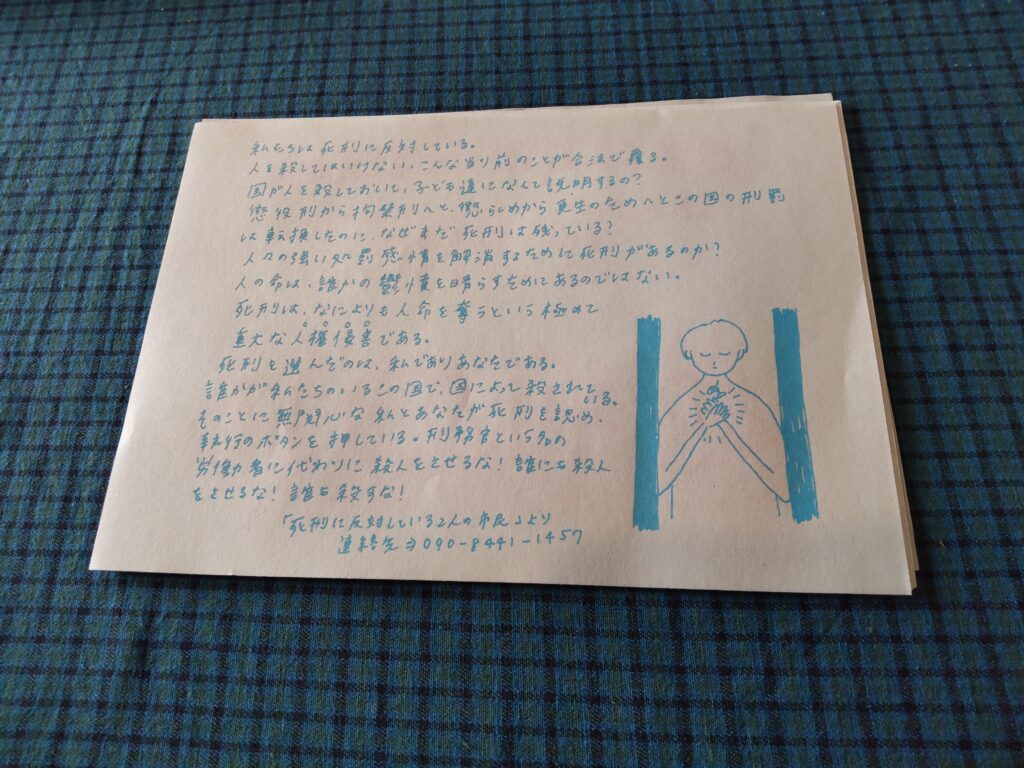 私たちは死刑に反対している。
人を殺してはいけない、こんな当り前のことが合法で覆る。
国が人を殺しておいて、子ども達になんて説明するの?
懲役刑から拘禁刑へと、懲らしめから更生のためへとこの国の刑罰
は転換したのに、なぜまだ死刑は残っている?
人々の強い処罰感情を解消するために死刑があるのか?
人の命は、誰かの鬱憤を晴らすためにあるのではない。
死刑は、なによりも人命を奪うという極めて
重大な人権侵害である。
死刑を選んだのは、私でありあなたである。
誰かが私たちのいるこの国で、国によって殺されている。
そのことに無関心な私とあなたが死刑を認め、
執行のボタンを押している。刑務官という名の
労働者に代わりに殺人をさせるな!誰にも殺人
をさせるな!誰も殺すな!
「死刑に反対している2人の市民」より
連絡先⇒090-8441-1457